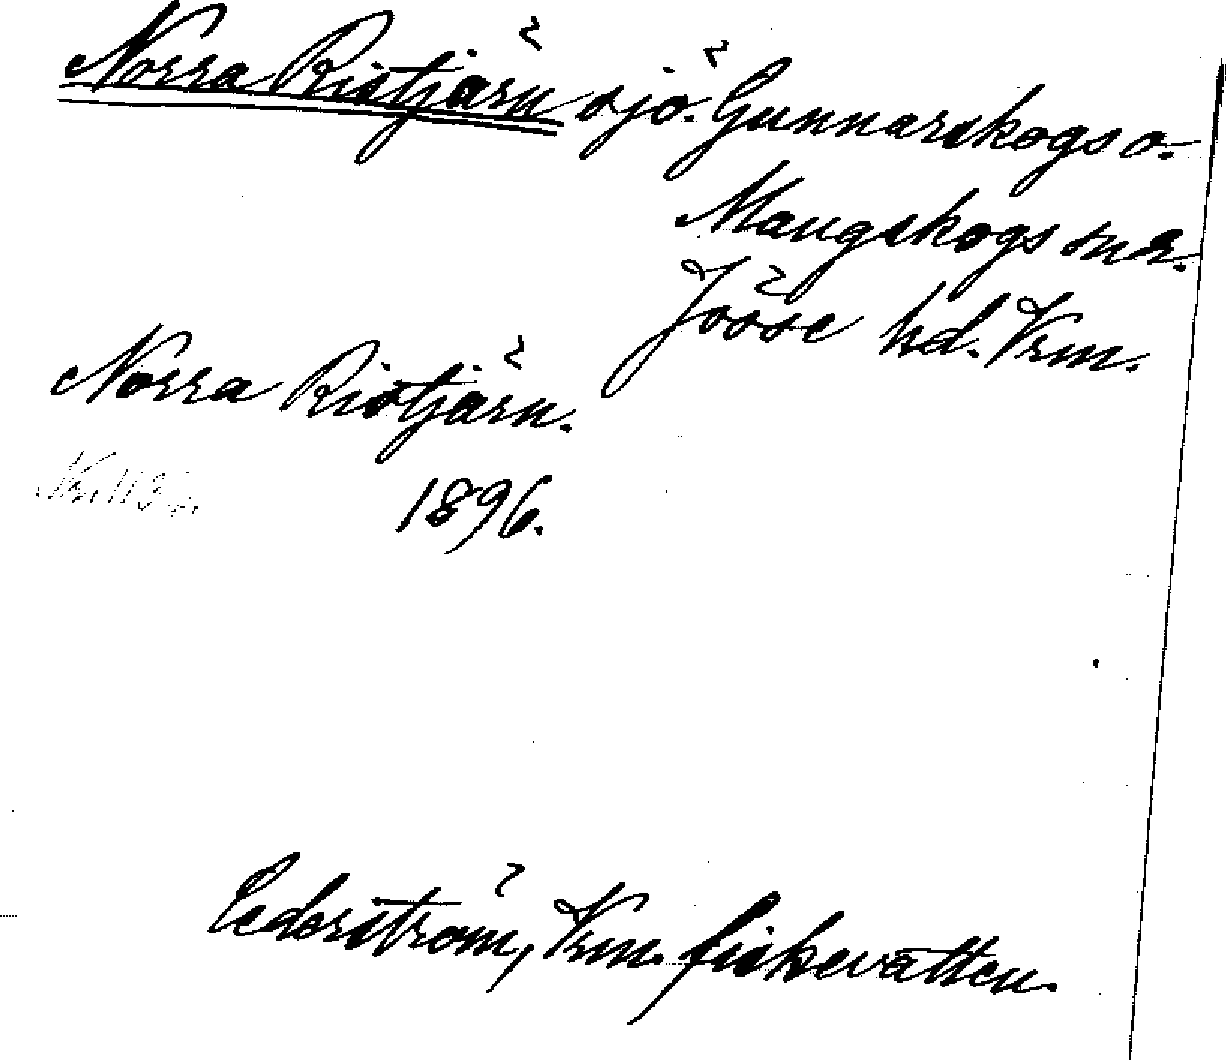 Norra Ristjärn sjö. Gunnarskogs o.
Mangskogs snr.
Jösse hd. Vrm.
Norra Ristjärn.
1896.
Cederström, Vrm. fiskevatten.